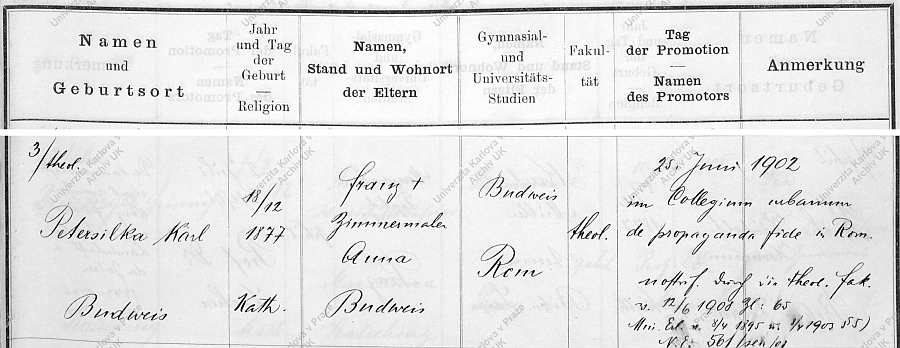 Namen
und
Geburtsort
Jahr
und Tag
der
Geburt
Religion
Namen,
Stand und Wohnort
der Eltern
Gymnasial-
und
Universitäts-
Studien
Fakul-
tät
Tag
der Promotion
Namen
des Promotors
Anmerkung
3/theol.
Petersilka Karl
Budweis
18/12
1877
Kath.
Franz +
Zimmermaler
Anna
Budweis
Budweis
Rom
theol.
25. Juni 1902
im Collegium urbanum
de propaganda fide in Rom.
nostrif. durch die theol. Fak.
v. 12/6 1908 Zl: 65
Min. Erl. v. 3/4 1895
N.E: 561/sen/08
Univerzita Karlova v Praze
Archiv UK